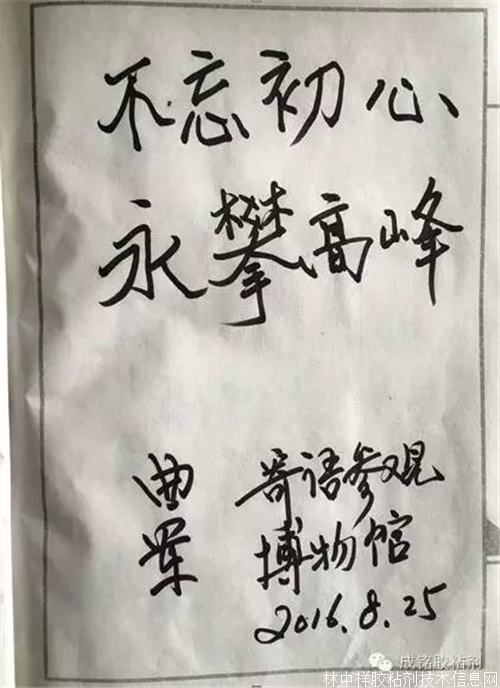 不忘初心
永攀高峰
曲 寄语参观
荣 博物馆
2016.8.25
成铭胶粘剂
林中祥胶粘剂技术信息网